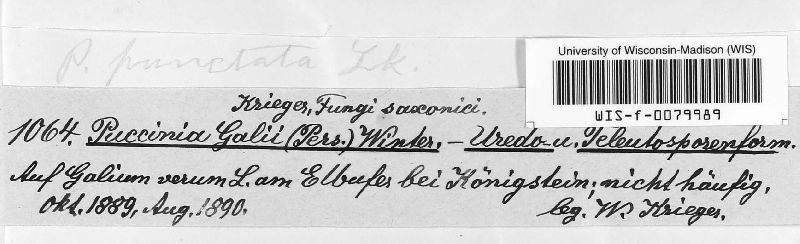 P. punctata Lk.
University of Wisconsin-Madison (WIS)
WIS-f-0079989
Krieger, Fungi saxonici.
1064. Puccinia Galii (Pers.) Winter. – Uredo- u. Teleutosporenform.
Auf Galium verum L. am Elbufer bei Königstein; nicht häufig,
Okt. 1889, Aug. 1890. leg. W. Krieger.